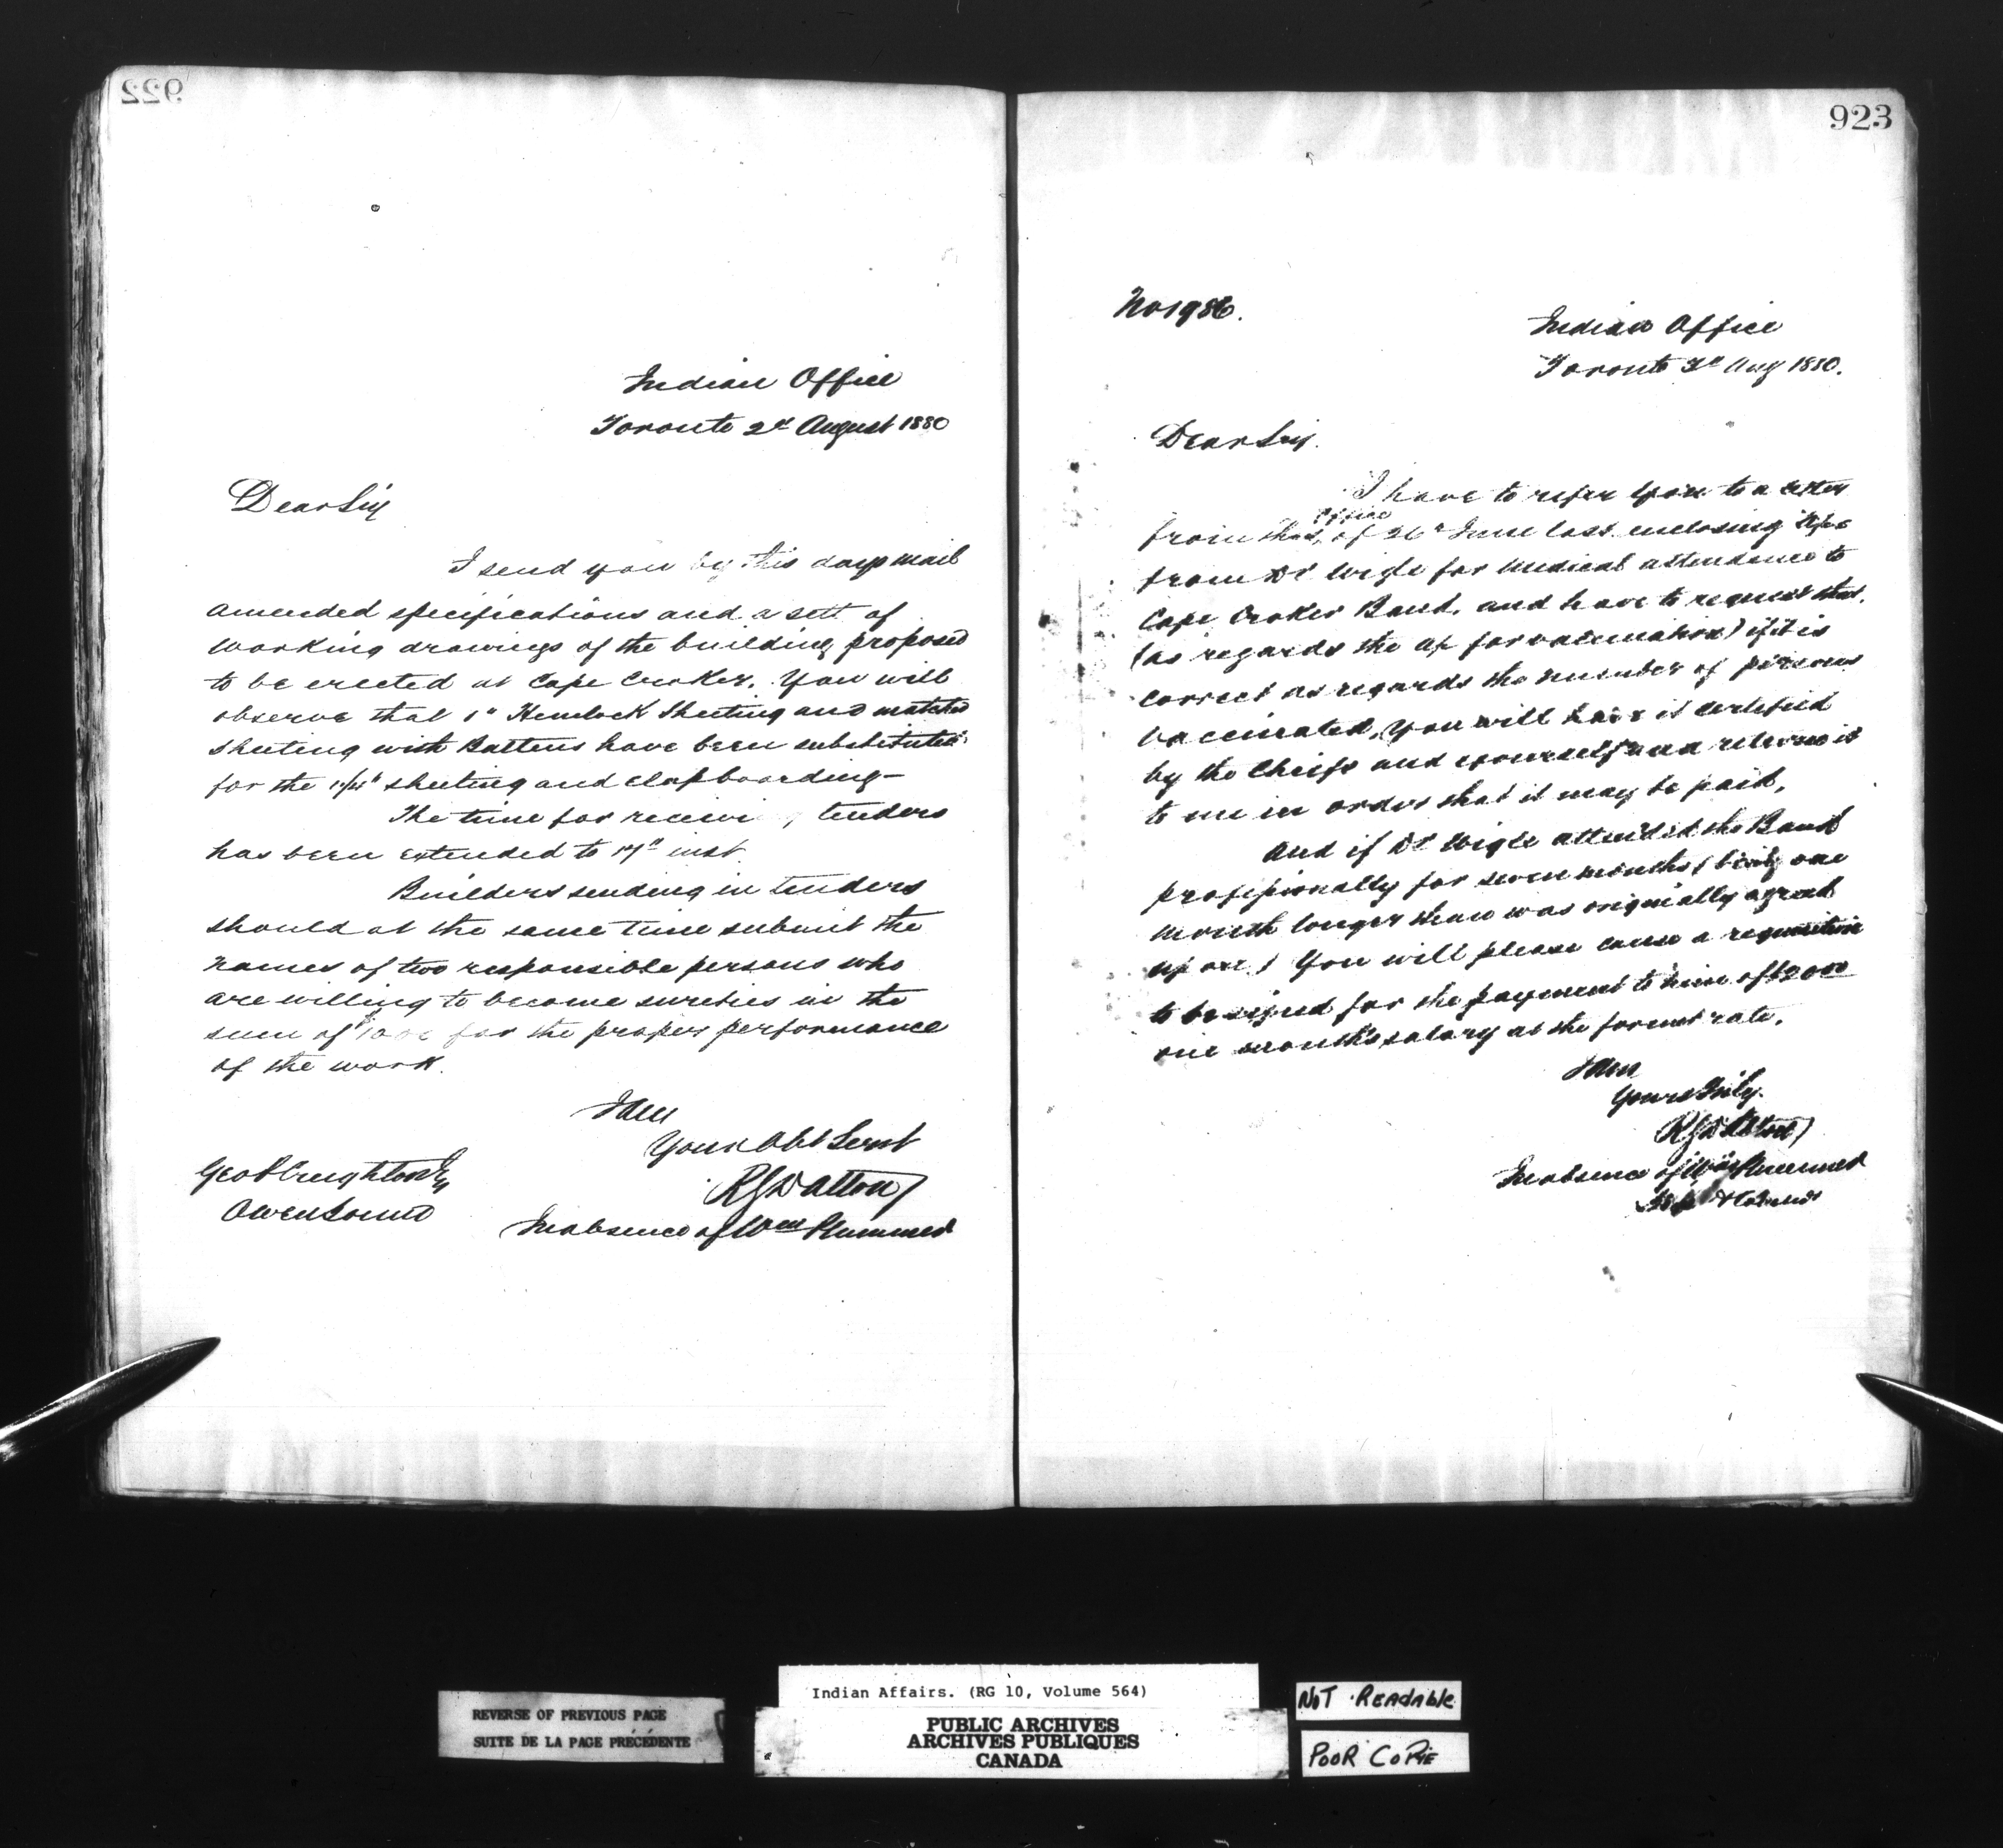 922
Indian Office
Toronto 2d August 1880
Dear Sir
I send you by this days mail
amended specifications and a sett of
working drawings of the building proposed
to be erected at Cape Croker. You will
observe that 1" Hemlock Sheeting and matched
sheeting with Battens have been substituted
for the 1 1/4" sheeting and clapboarding—
The time for receivi , tenders
has been extended to 17" inst.
Builders sending in tenders
should at the same time submit the
names of two responsible persons who
are willing to become sureties in the
sum of for the proper performance
of the work.
I am
Your Obt Servt
RGDalton
In absence of Wm Plummer
Geo Creighton Esq
Owen Sound
923
No 1986.
Indian Office
Toronto Aug 1880.
Dear Sir.
I have to refer you to a letter
from this office of 26" June last enclosing
from Dr Wigle for medical attendance to
Cape Croker Band, and have to request that,
(as regards the a/c for vaccination) if it is
correct as regards the number of persons
vaccinated, you will have it certified
by the Chiefs and yourself and return it
to me in order that it may be paid,
And if Dr Wigle attended the Band
professionally for seven months (being one
month longer than was originally agreed
upon) You will please cause a requisition
to be signed for the payment to him of
one month's salary at the former rate.
I am
Yours truly.
RGDalton
In absence of Wm Plummer
REVERSE OF PREVIOUS PAGE
SUITE DE LA PAGE PRÉCÉDENTE
Indian Affairs. (RG 10, Volume 564)
PUBLIC ARCHIVES
ARCHIVES PUBLIQUES
CANADA
NOT READABLE
POOR COPIE